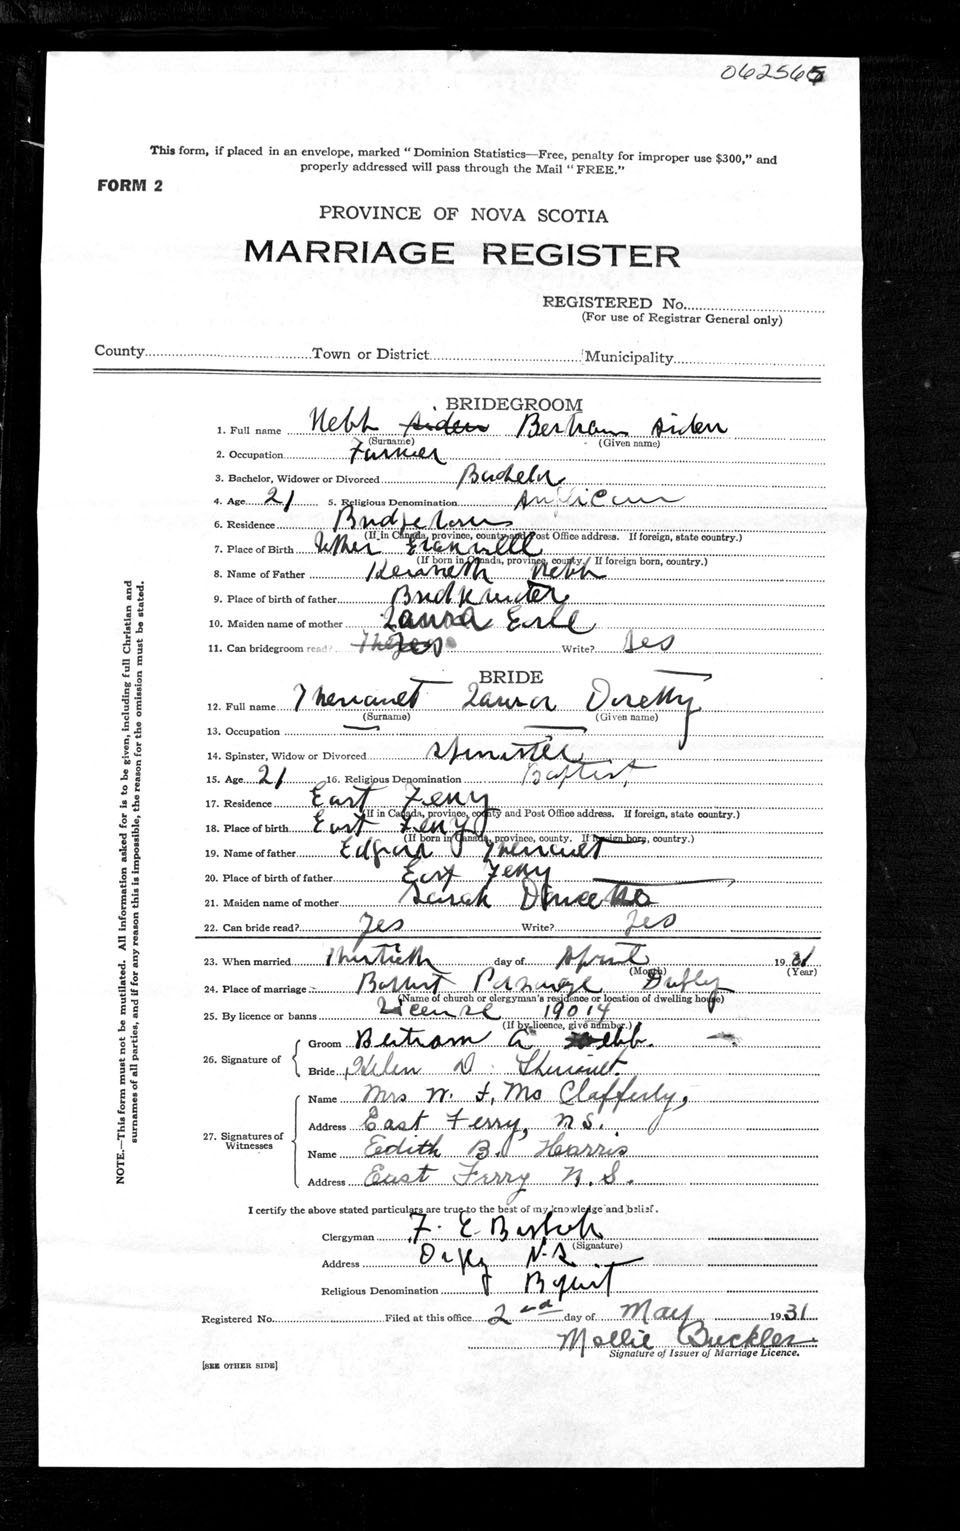 062565
This form, if placed in an envelope, marked "Dominion Statistics—Free, penalty for improper use $300," and
properly addressed will pass through the Mail "FREE."
FORM 2
PROVINCE OF NOVA SCOTIA
MARRIAGE REGISTER
REGISTERED No.
(For use of Registrar General only)
County Town or District Municipality
BRIDEGROOM
1. Full name Bertram Aiden
(Surname) (Given name)
2. Occupation Farmer
3. Bachelor, Widower or Divorced Bachelor
4. Age 21 5. Religious Denomination Anglican
6. Residence Bridgetown
(If in Canada, province, county and Post Office address. If foreign, state country.)
7. Place of Birth Granville
(If born in Canada, province, county. If foreign born, country.)
8. Name of Father Kenneth
9. Place of birth of father
10. Maiden name of mother Laura
11. Can bridegroom read? Yes Write? Yes
BRIDE
12. Full name
(Surname) (Given name)
13. Occupation
14. Spinster, Widow or Divorced Spinster
15. Age 21 16. Religious Denomination Baptist
17. Residence East Ferry
(If in Canada, province, county and Post Office address. If foreign, state country.)
18. Place of birth East Ferry
(If born in Canada, province, county. If foreign born, country.)
19. Name of father Edgar
20. Place of birth of father East Ferry
21. Maiden name of mother Sarah
22. Can bride read? Yes Write? Yes
23. When married Thirtieth day of April 1931
(Month) (Year)
24. Place of marriage Baptist Parsonage
(Name of church or clergyman's residence or location of dwelling house)
25. By licence or banns License 19014
(If by licence, give number.)
26. Signature of
Groom Bertram A Webb.
Bride Helen D. Theriault.
27. Signatures of Witnesses
Name Mrs W. F. Mc Clafferty,
Address East Ferry, N.S.
Name Edith B. Harris
Address East Ferry N.S.
I certify the above stated particulars are true to the best of my knowledge and belief.
Clergyman F. E.
(Signature)
Address Digby N.S.
Religious Denomination Baptist
Registered No. Filed at this office 2nd day of May 1931
Mollie Buckler
Signature of Issuer of Marriage Licence.
[SEE OTHER SIDE]
NOTE.—This form must not be mutilated. All information asked for is to be given, including full Christian and
surnames of all parties, and if for any reason this is impossible, the reason for the omission must be stated.